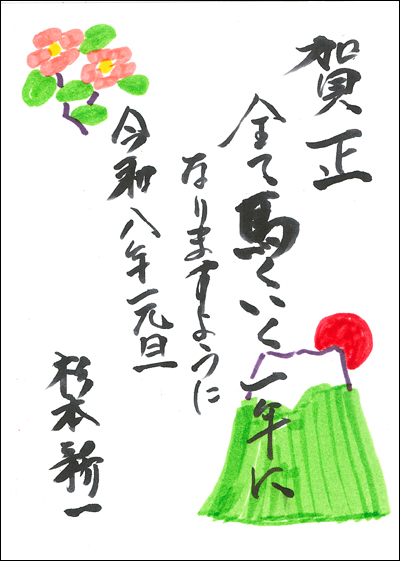 賀正
全て馬くいく一年に
なりますように
令和八年元旦
杉本新一